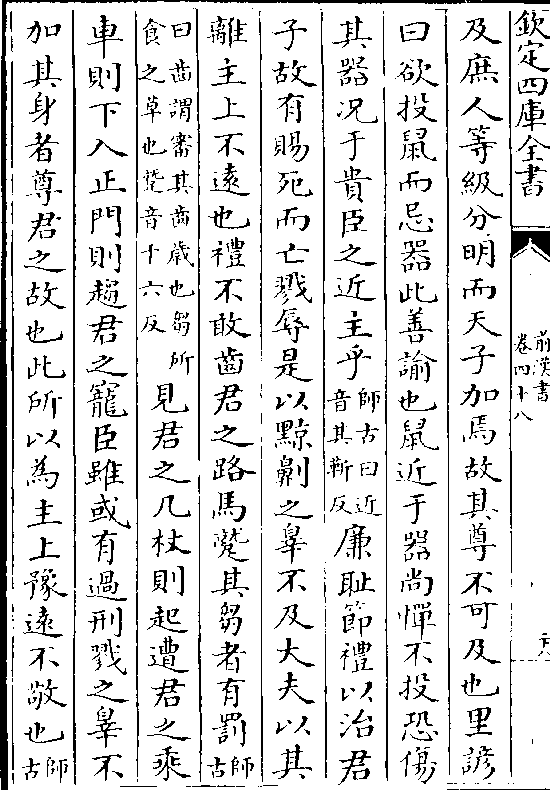 欽定四庫全書
前漢書
卷四十八
及庶人等級分明而天子加焉故其尊不可及也里諺
曰欲投鼠而忌器此善諭也鼠近于器尚憚不投恐傷
其器况于貴臣之近主乎師古曰近
音其靳反廉耻節禮以治君
子故有賜死而亡戮辱是以黥劓之辠不及大夫以其
離主上不遠也禮不敢齒君之路馬蹵其芻者有罰師古
曰齒謂審其齒歳也芻所
食之草也蹵音千六反見君之几杖則起遭君之乘
車則下入正門則趨君之寵臣雖或有過刑戮之辠不
加其身者尊君之故也此所以為主上豫遠不敬也師古